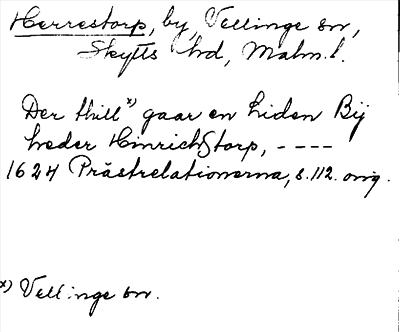 Herrestorp, by, Vellinge sn,
Skytts hd, Malm. l.
Der thill x) gaar en liden Bÿ
heder Hinrichstorp, ----
1624 Prästrelationerna, s. 112. orig.
x) Vellinge sn.